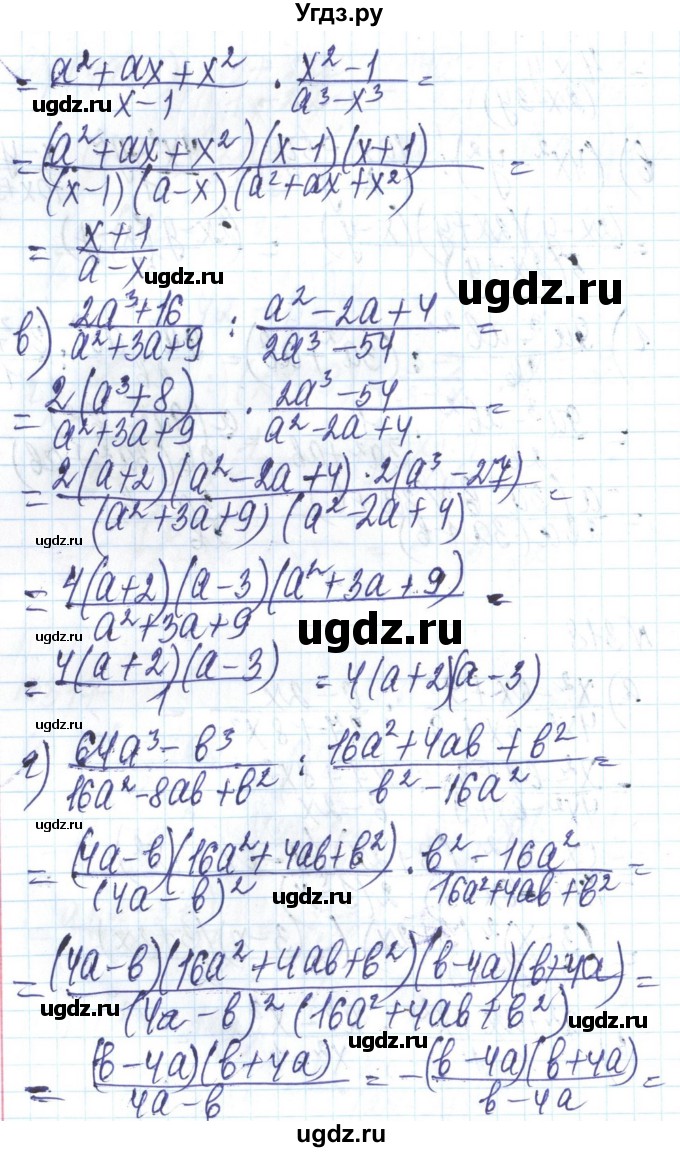 Угдз.ру
= (a² + ax + x²)/(x - 1) · (x² - 1)/(a³ - x³) =
ugdz.ru
= (a² + ax + x²)(x - 1)(x + 1) / (x - 1)(a - x)(a² + ax + x²) =
= (x + 1)/(a - x)
ugdz.ru
ugdz.ru
в) (2a³ + 16)/(a² + 3a + 9) : (a² - 2a + 4)/(2a³ - 54) =
= 2(a³ + 8)/(a² + 3a + 9) · (2a³ - 54)/(a² - 2a + 4) =
ugdz.ru
= 2(a + 2)(a² - 2a + 4) · 2(a³ - 27) / (a² + 3a + 9)(a² - 2a + 4) =
ugdz.ru
= 4(a + 2)(a - 3)(a² + 3a + 9) / a² + 3a + 9 =
ugdz.ru
ugdz.ru
= 4(a + 2)(a - 3)/1 = 4(a + 2)(a - 3)
г) (64a³ - в³)/(16a² - 8aв + в²) : (16a² + 4aв + в²)/(в² - 16a²) =
= (4a - в)(16a² + 4aв + в²)/(4a - в)² · (в² - 16a²)/(16a² + 4aв + в²) =
ugdz.ru
= (4a - в)(16a² + 4aв + в²)(в - 4a)(в + 4a) / (4a - в)² (16a² + 4aв + в²) =
ugdz.ru
ugdz.ru
= (в - 4a)(в + 4a)/(4a - в) = - (в - 4a)(в + 4a)/(в - 4a) =
ugdz.ru
ugdz.ru